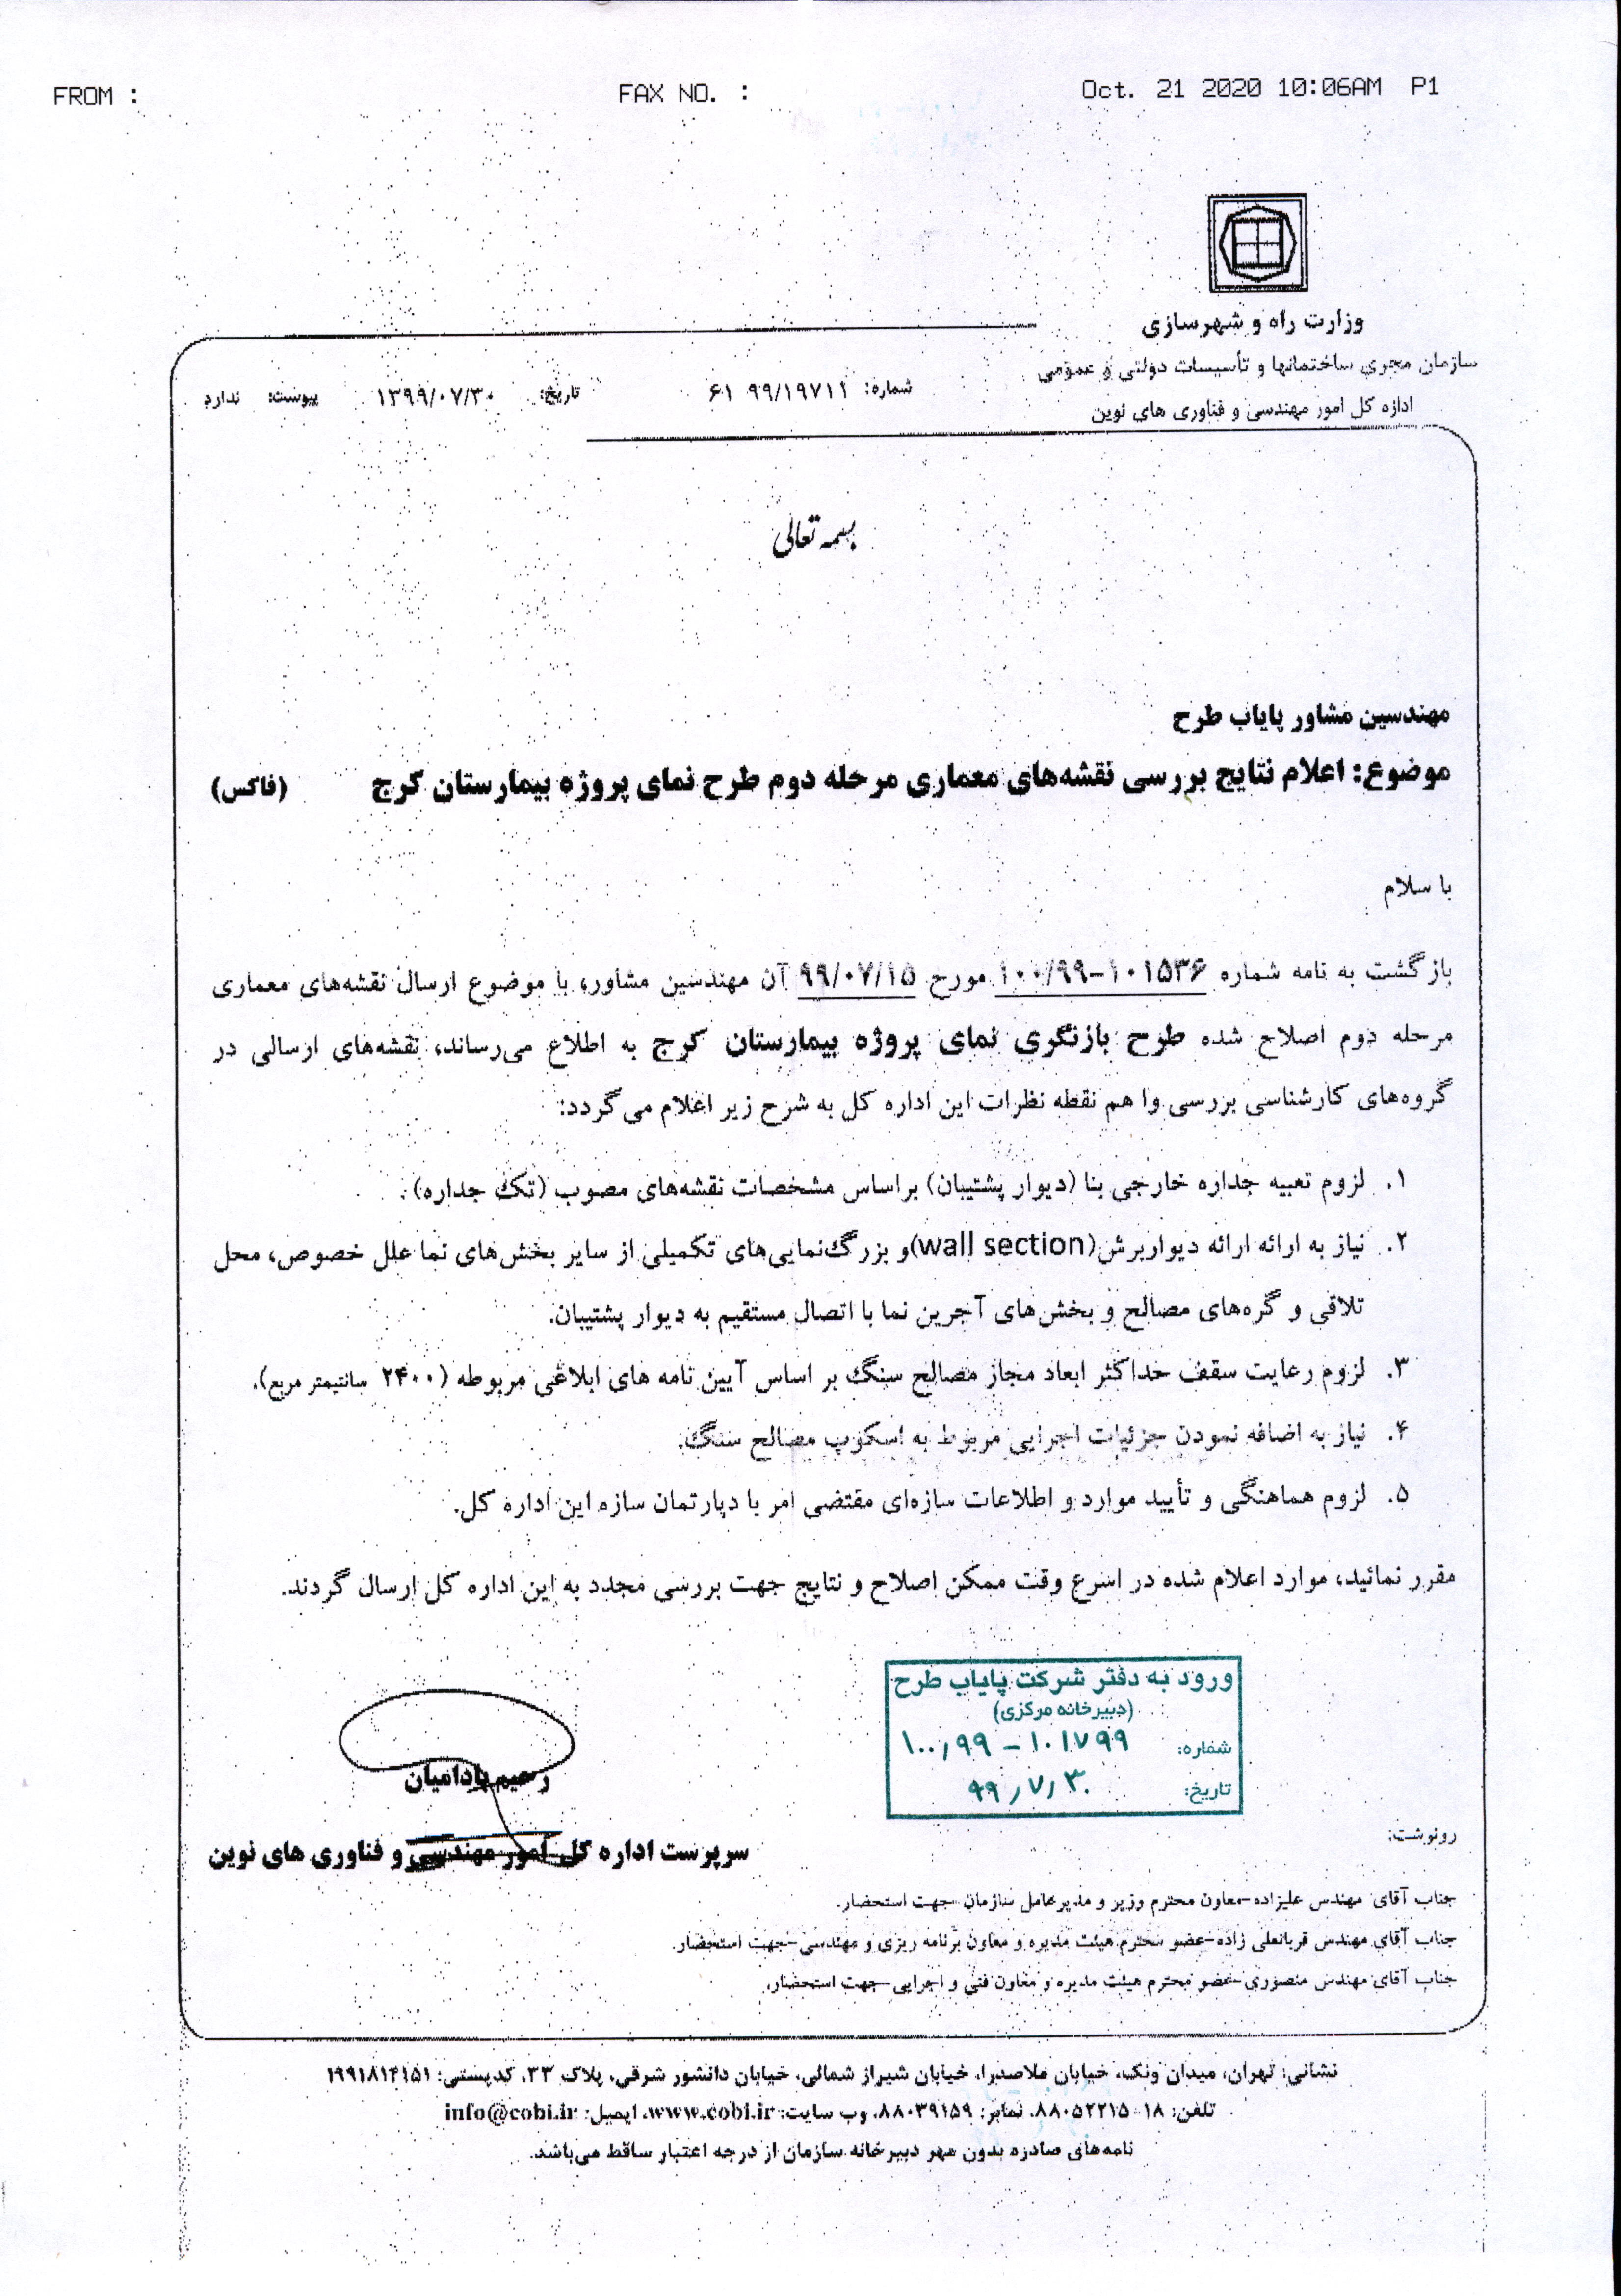 FROM : FAX NO. : Oct. 21 2020 10:06AM P1
وزارت راه و شهرسازی
سازمان مجری ساختمانها و تأسیسات دولتی و عمومی
اداره کل امور مهندسی و فناوری های نوین
شماره: ۹۹/۱۹۷۱۱ ۶۱ تاریخ: ۱۳۹۹/۰۷/۳۰ پیوست: ندارد
بسمه تعالی
مهندسین مشاور پایاب طرح
موضوع: اعلام نتایج بررسی نقشه‌های معماری مرحله دوم طرح نمای پروژه بیمارستان کرج (فاکس)
با سلام
بازگشت به نامه شماره ۱۰۰/۹۹-۱۰۱۵۳۶ مورخ ۹۹/۰۷/۱۵ آن مهندسین مشاور، با موضوع ارسال نقشه‌های معماری
مرحله دوم اصلاح شده طرح بازنگری نمای پروژه بیمارستان کرج به اطلاع می‌رساند، نقشه‌های ارسالی در
گروه‌های کارشناسی بررسی و اهم نقطه نظرات این اداره کل به شرح زیر اعلام می‌گردد:
۱. لزوم تعبیه جداره خارجی بنا (دیوار پشتیبان) براساس مشخصات نقشه‌های مصوب (تک جداره).
۲. نیاز به ارائه ارائه دیواربرش(wall section)و بزرگ‌نمایی‌های تکمیلی از سایر بخش‌های نما علل خصوص، محل
تلاقی و گره‌های مصالح و بخش‌های آجرین نما با اتصال مستقیم به دیوار پشتیبان.
۳. لزوم رعایت سقف حداکثر ابعاد مجاز مصالح سنگ بر اساس آیین نامه های ابلاغی مربوطه (۲۴۰۰ سانتیمتر مربع).
۴. نیاز به اضافه نمودن جزئیات اجرایی مربوط به اسکوپ مصالح سنگ.
۵. لزوم هماهنگی و تأیید موارد و اطلاعات سازه‌ای مقتضی امر با دپارتمان سازه این اداره کل.
مقرر نمائید، موارد اعلام شده در اسرع وقت ممکن اصلاح و نتایج جهت بررسی مجدد به این اداره کل ارسال گردند.
ورود به دفتر شرکت پایاب طرح
(دبیرخانه مرکزی)
شماره: ۱۰۰/۹۹ - ۱۰۱۷۹۹
تاریخ: ۹۹/۷/۳۰
رحیم بادامیان
سرپرست اداره کل امور مهندسی و فناوری های نوین
رونوشت:
جناب آقای مهندس علیزاده-معاون محترم وزیر و مدیرعامل سازمان-جهت استحضار.
جناب آقای مهندس قربانعلی زاده-عضو محترم هیئت مدیره و معاون برنامه ریزی و مهندسی-جهت استحضار.
جناب آقای مهندس منصوری-عضو محترم هیئت مدیره و معاون فنی و اجرایی-جهت استحضار.
نشانی: تهران، میدان ونک، خیابان ملاصدرا، خیابان شیراز شمالی، خیابان دانشور شرقی، پلاک ۳۳، کدپستی: ۱۹۹۱۸۱۴۱۵۱
تلفن: ۱۸-۸۸۰۵۲۲۱۵، نمابر: ۸۸۰۳۹۱۵۹، وب سایت: www.cobi.ir، ایمیل: info@cobi.ir
نامه‌های صادره بدون مهر دبیرخانه سازمان از درجه اعتبار ساقط می‌باشد.